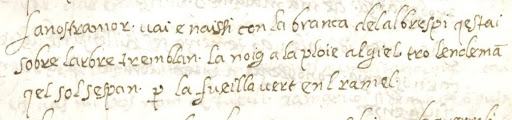 La nostramor· uai e naissi con la branca del albrespi q̃stai
sobre larbre tremblan· la noig a la ploie al giel· tro lendemã
q̃el sol sespan· ꝑ la fueilla uert en l ramel·